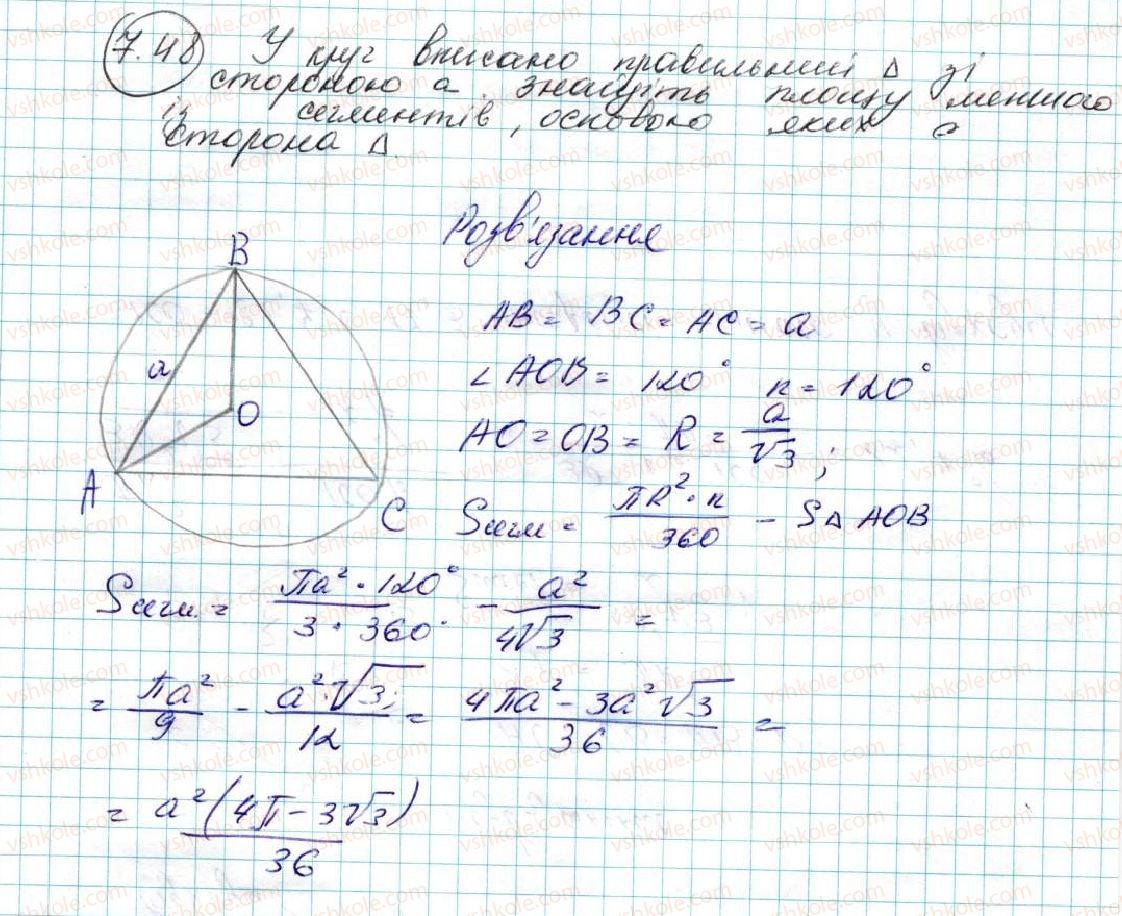 7.48 У круг вписано правильний Δ зі
стороною a. Знайдіть площу меншого
із сегментів, основою яких є
сторона Δ
Розв'язання
B
a
O
A
C
AB = BC = AC = a
∠ AOB = 120° n = 120°
AO = OB = R = a/√3 ;
Sсегм = πR² · n / 360 − S Δ AOB
Sсегм. = πa² · 120° / 3 · 360° − a² / 4√3 =
= πa²/9 − a²·√3/12 = 4πa² − 3a²√3 / 36 =
= a²(4π − 3√3) / 36